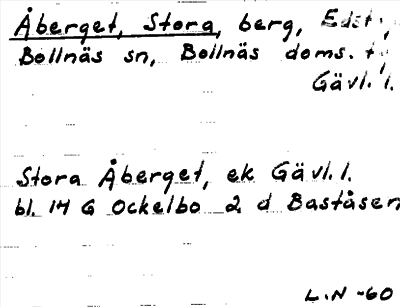 Åberget, Stora, berg, Edst.,
Bollnäs sn, Bollnäs doms. t.,
Gävl. l.
Stora Åberget, ek Gävl. l.
bl. 14 G Ockelbo 2 d Baståsen
L.N -60